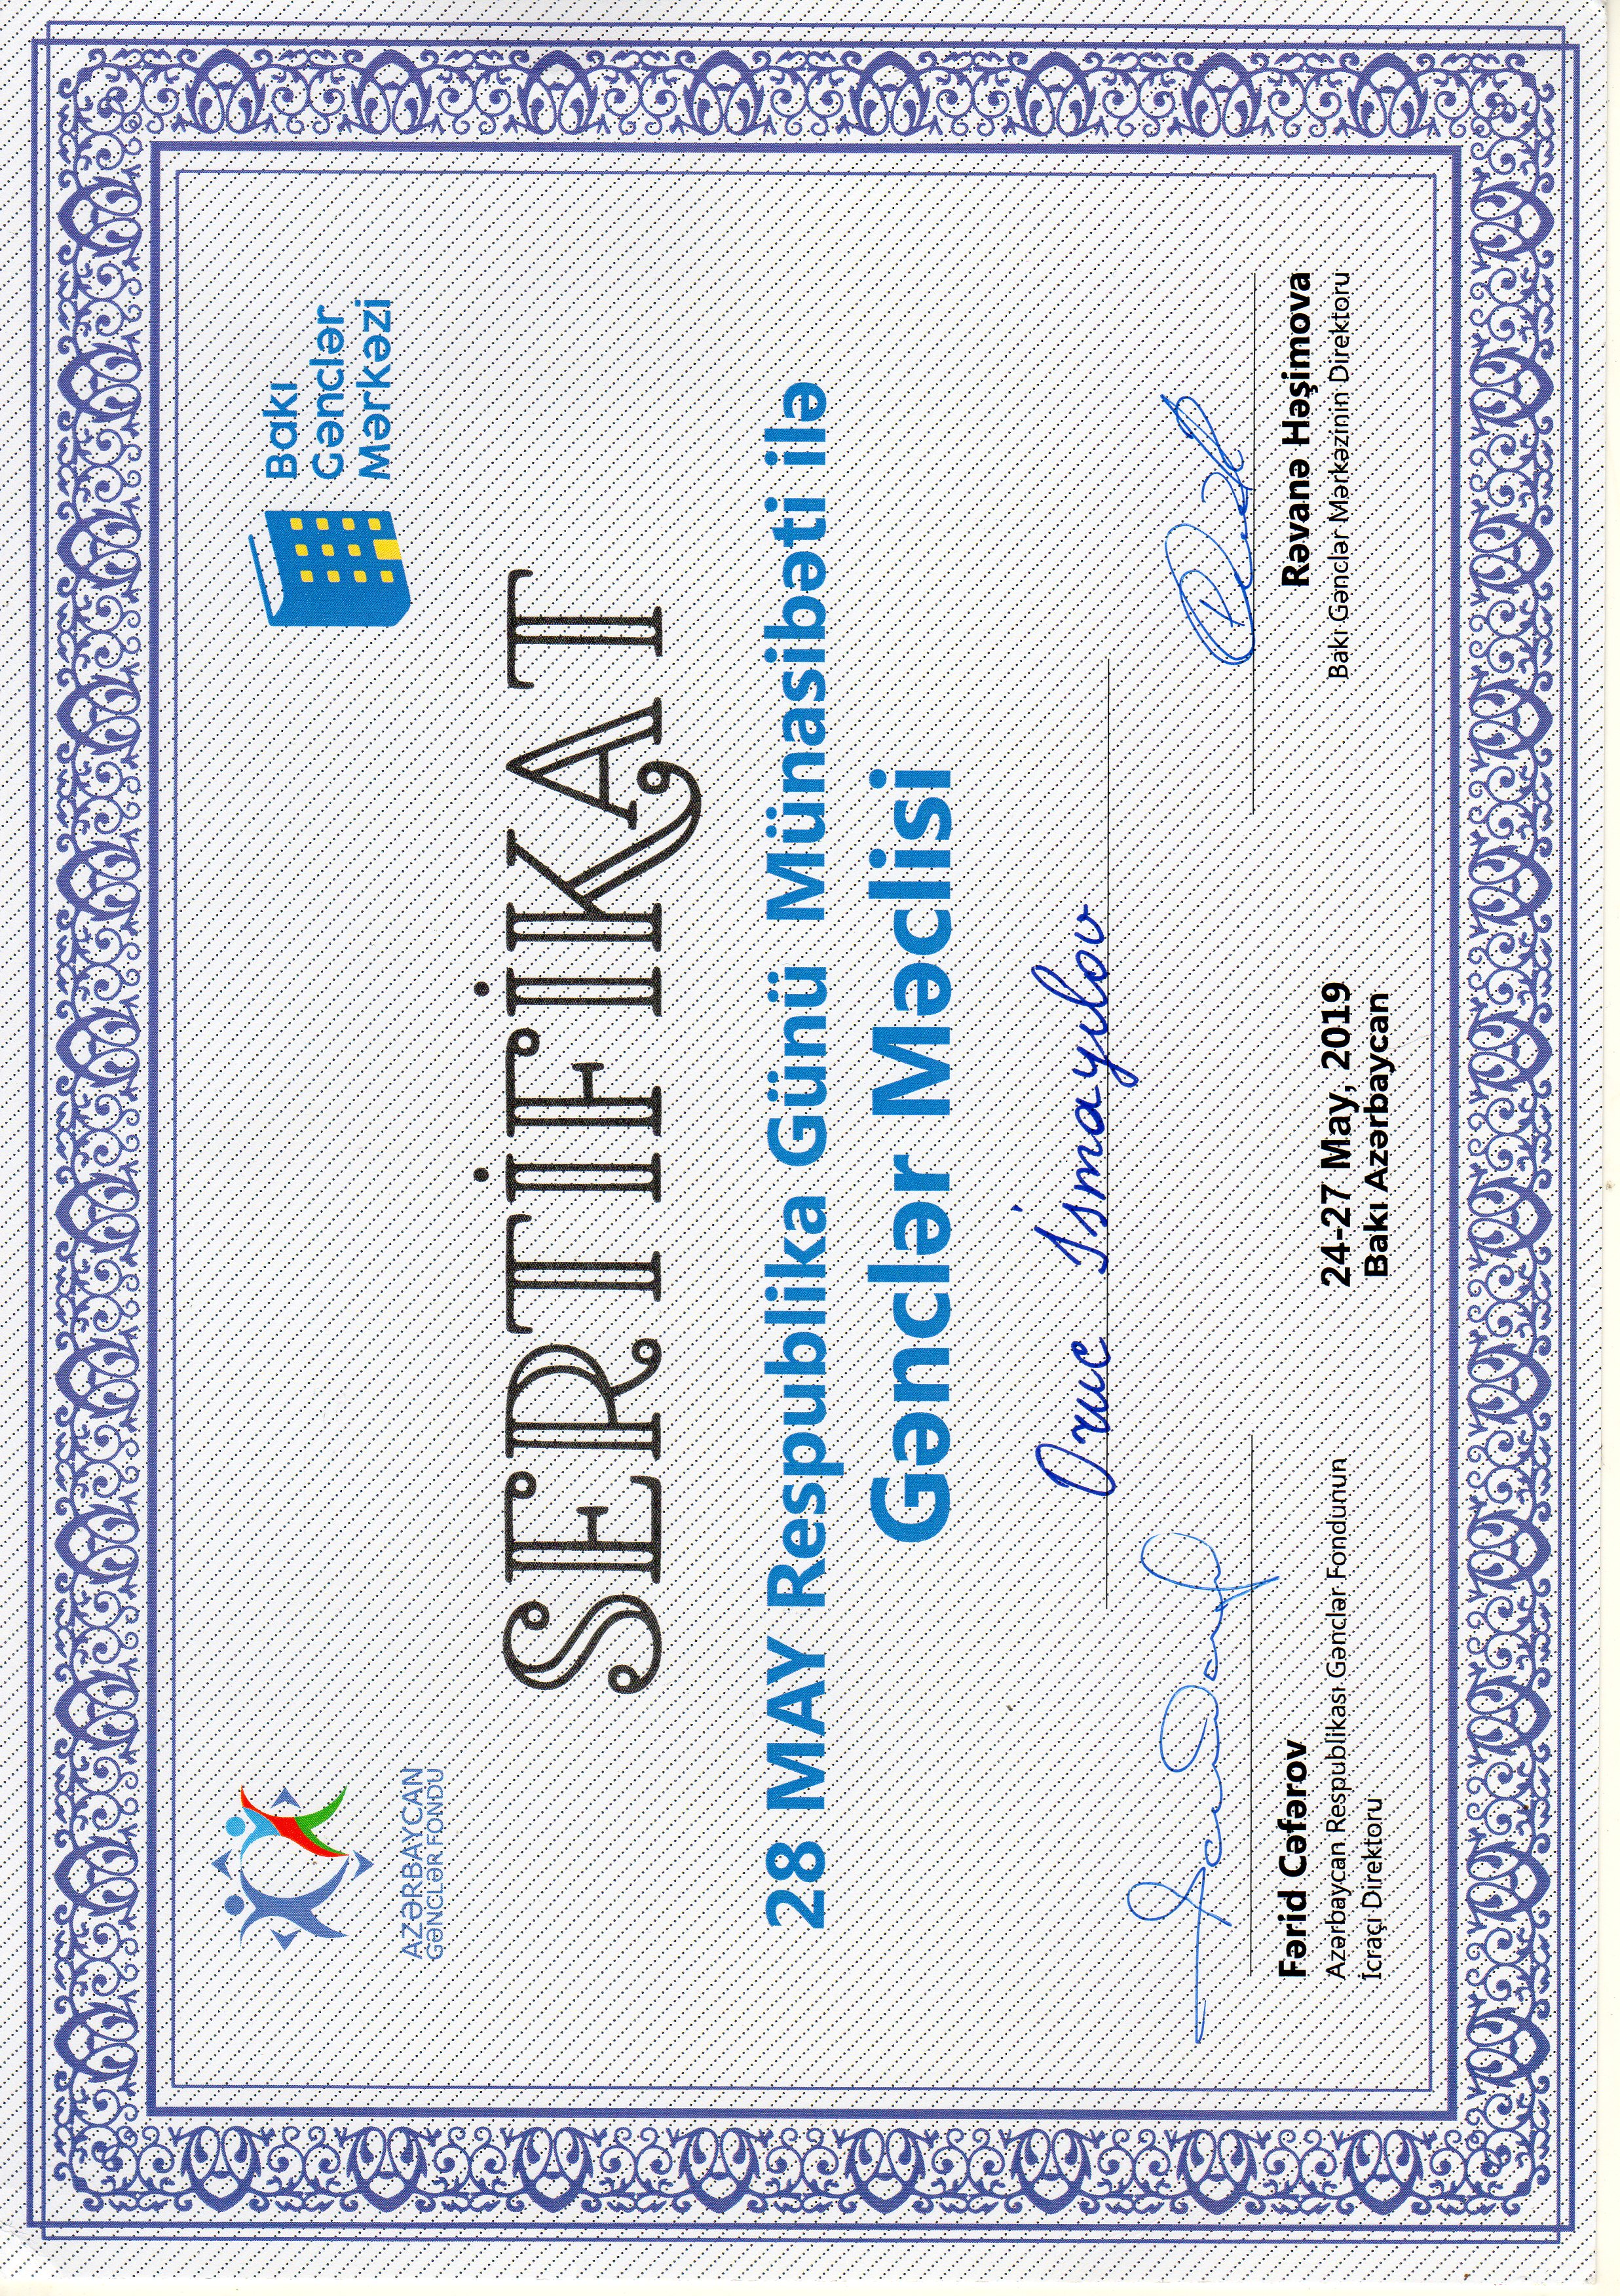 AZƏRBAYCAN
GƏNCLƏR FONDU
Bakı
Gənclər
Mərkəzi
SERTİFİKAT
28 MAY Respublika Günü Münasibəti ilə
Gənclər Məclisi
Oruc İsmayılov
Fərid Cəfərov
Azərbaycan Respublikası Gənclər Fondunun
İcraçı Direktoru
24-27 May, 2019
Bakı Azərbaycan
Rəvanə Həşimova
Bakı Gənclər Mərkəzinin Direktoru